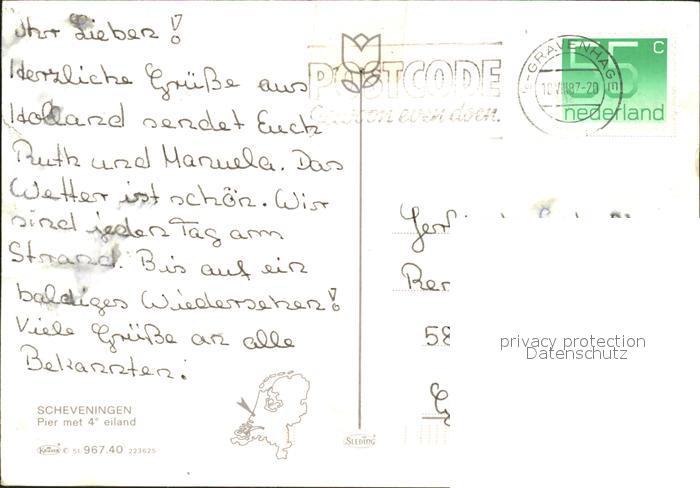 Ihr Lieben!
Herzliche Grüße aus
Holland sendet Euch
Ruth und Manuela. Das
Wetter ist schön. Wir
sind jeden Tag am
Strand. Bis auf ein
baldiges Wiedersehen!
Viele Grüße an alle
Bekannten!
POSTCODE
Gewoon even doen.
'S-GRAVENHAGE
55 c
nederland
58
privacy protection
Datenschutz
SCHEVENINGEN
Pier met 4e eiland
© St. 967.40 223625
SLEDING